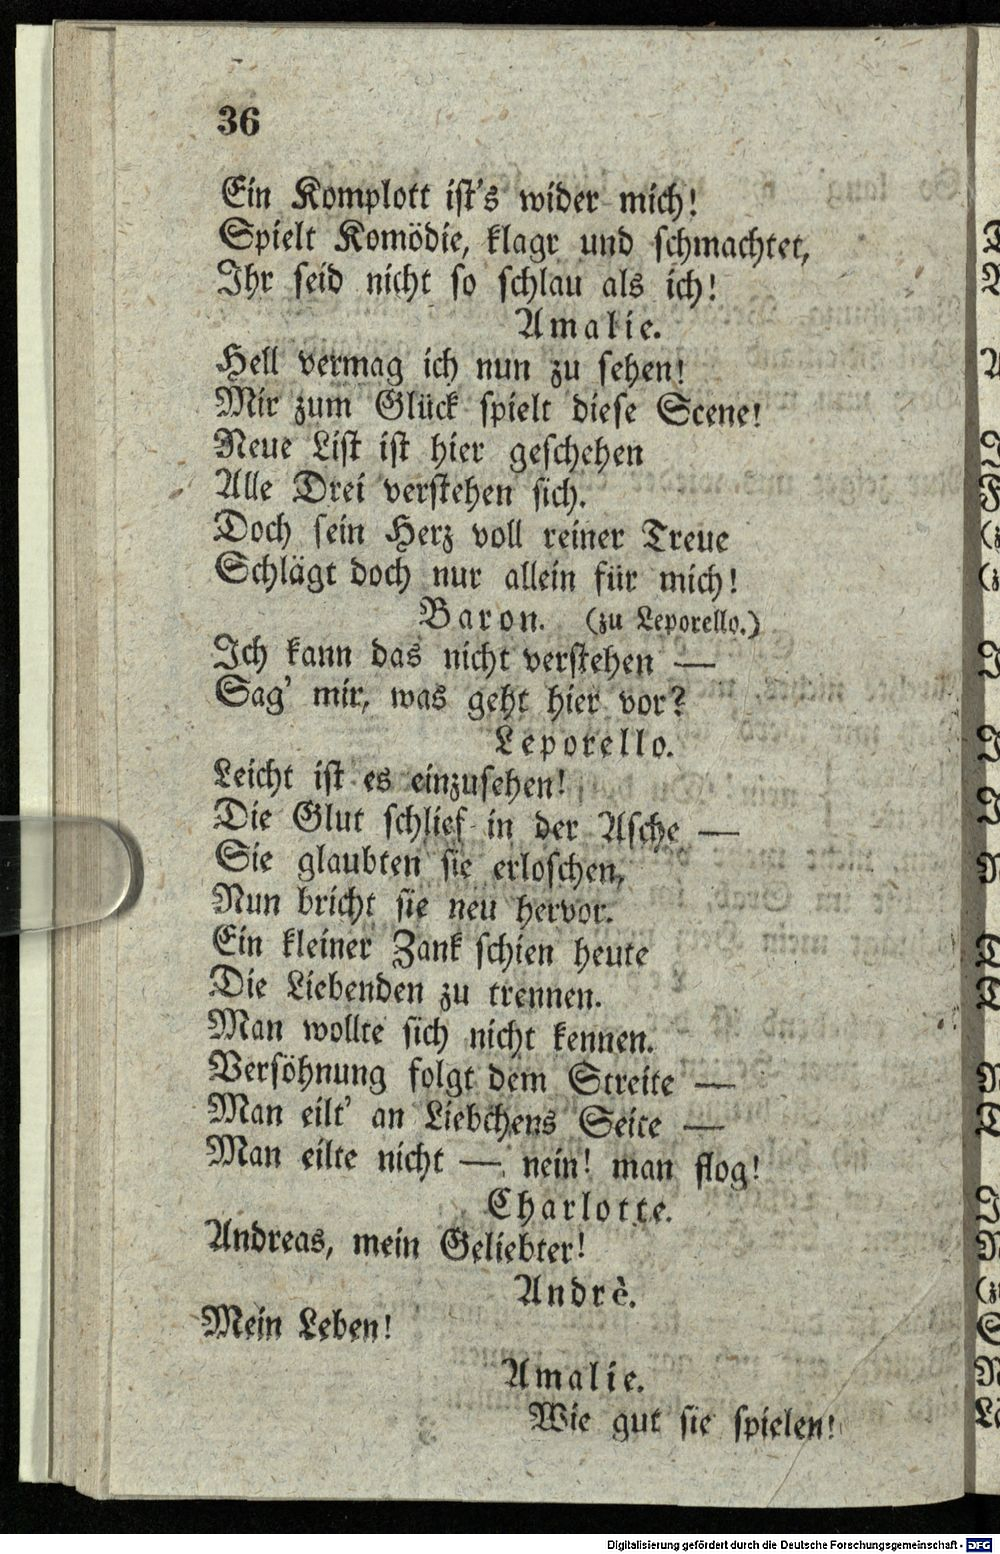 36
Ein Komplott ist's wider mich!
Spielt Komödie, klagt und schmachtet,
Ihr seid nicht so schlau als ich!
Amalie.
Hell vermag ich nun zu sehen!
Mir zum Glück spielt diese Scene!
Neue List ist hier geschehen
Alle Drei verstehen sich.
Doch sein Herz voll reiner Treue
Schlägt doch nur allein für mich!
Baron. (zu Leporello.)
Ich kann das nicht verstehen —
Sag' mir, was geht hier vor?
Leporello.
Leicht ist es einzusehen!
Die Glut schlief in der Asche —
Sie glaubten sie erloschen,
Nun bricht sie neu hervor.
Ein kleiner Zank schien heute
Die Liebenden zu trennen.
Man wollte sich nicht kennen.
Versöhnung folgt dem Streite —
Man eilt' an Liebchens Seite —
Man eilte nicht — nein! man flog!
Charlotte.
Andreas, mein Geliebter!
Andrè.
Mein Leben!
Amalie.
Wie gut sie spielen!
Digitalisierung gefördert durch die Deutsche Forschungsgemeinschaft - DFG